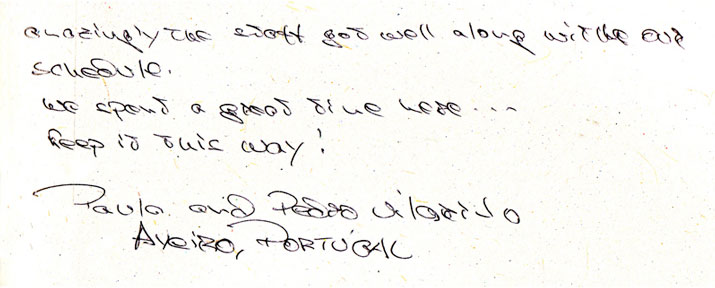 amazingly the staff got well along with the our
schedule.
We spend a great time here...
Keep it this way!
Paula and Pedro Vilarinho
Aveiro, PORTUGAL